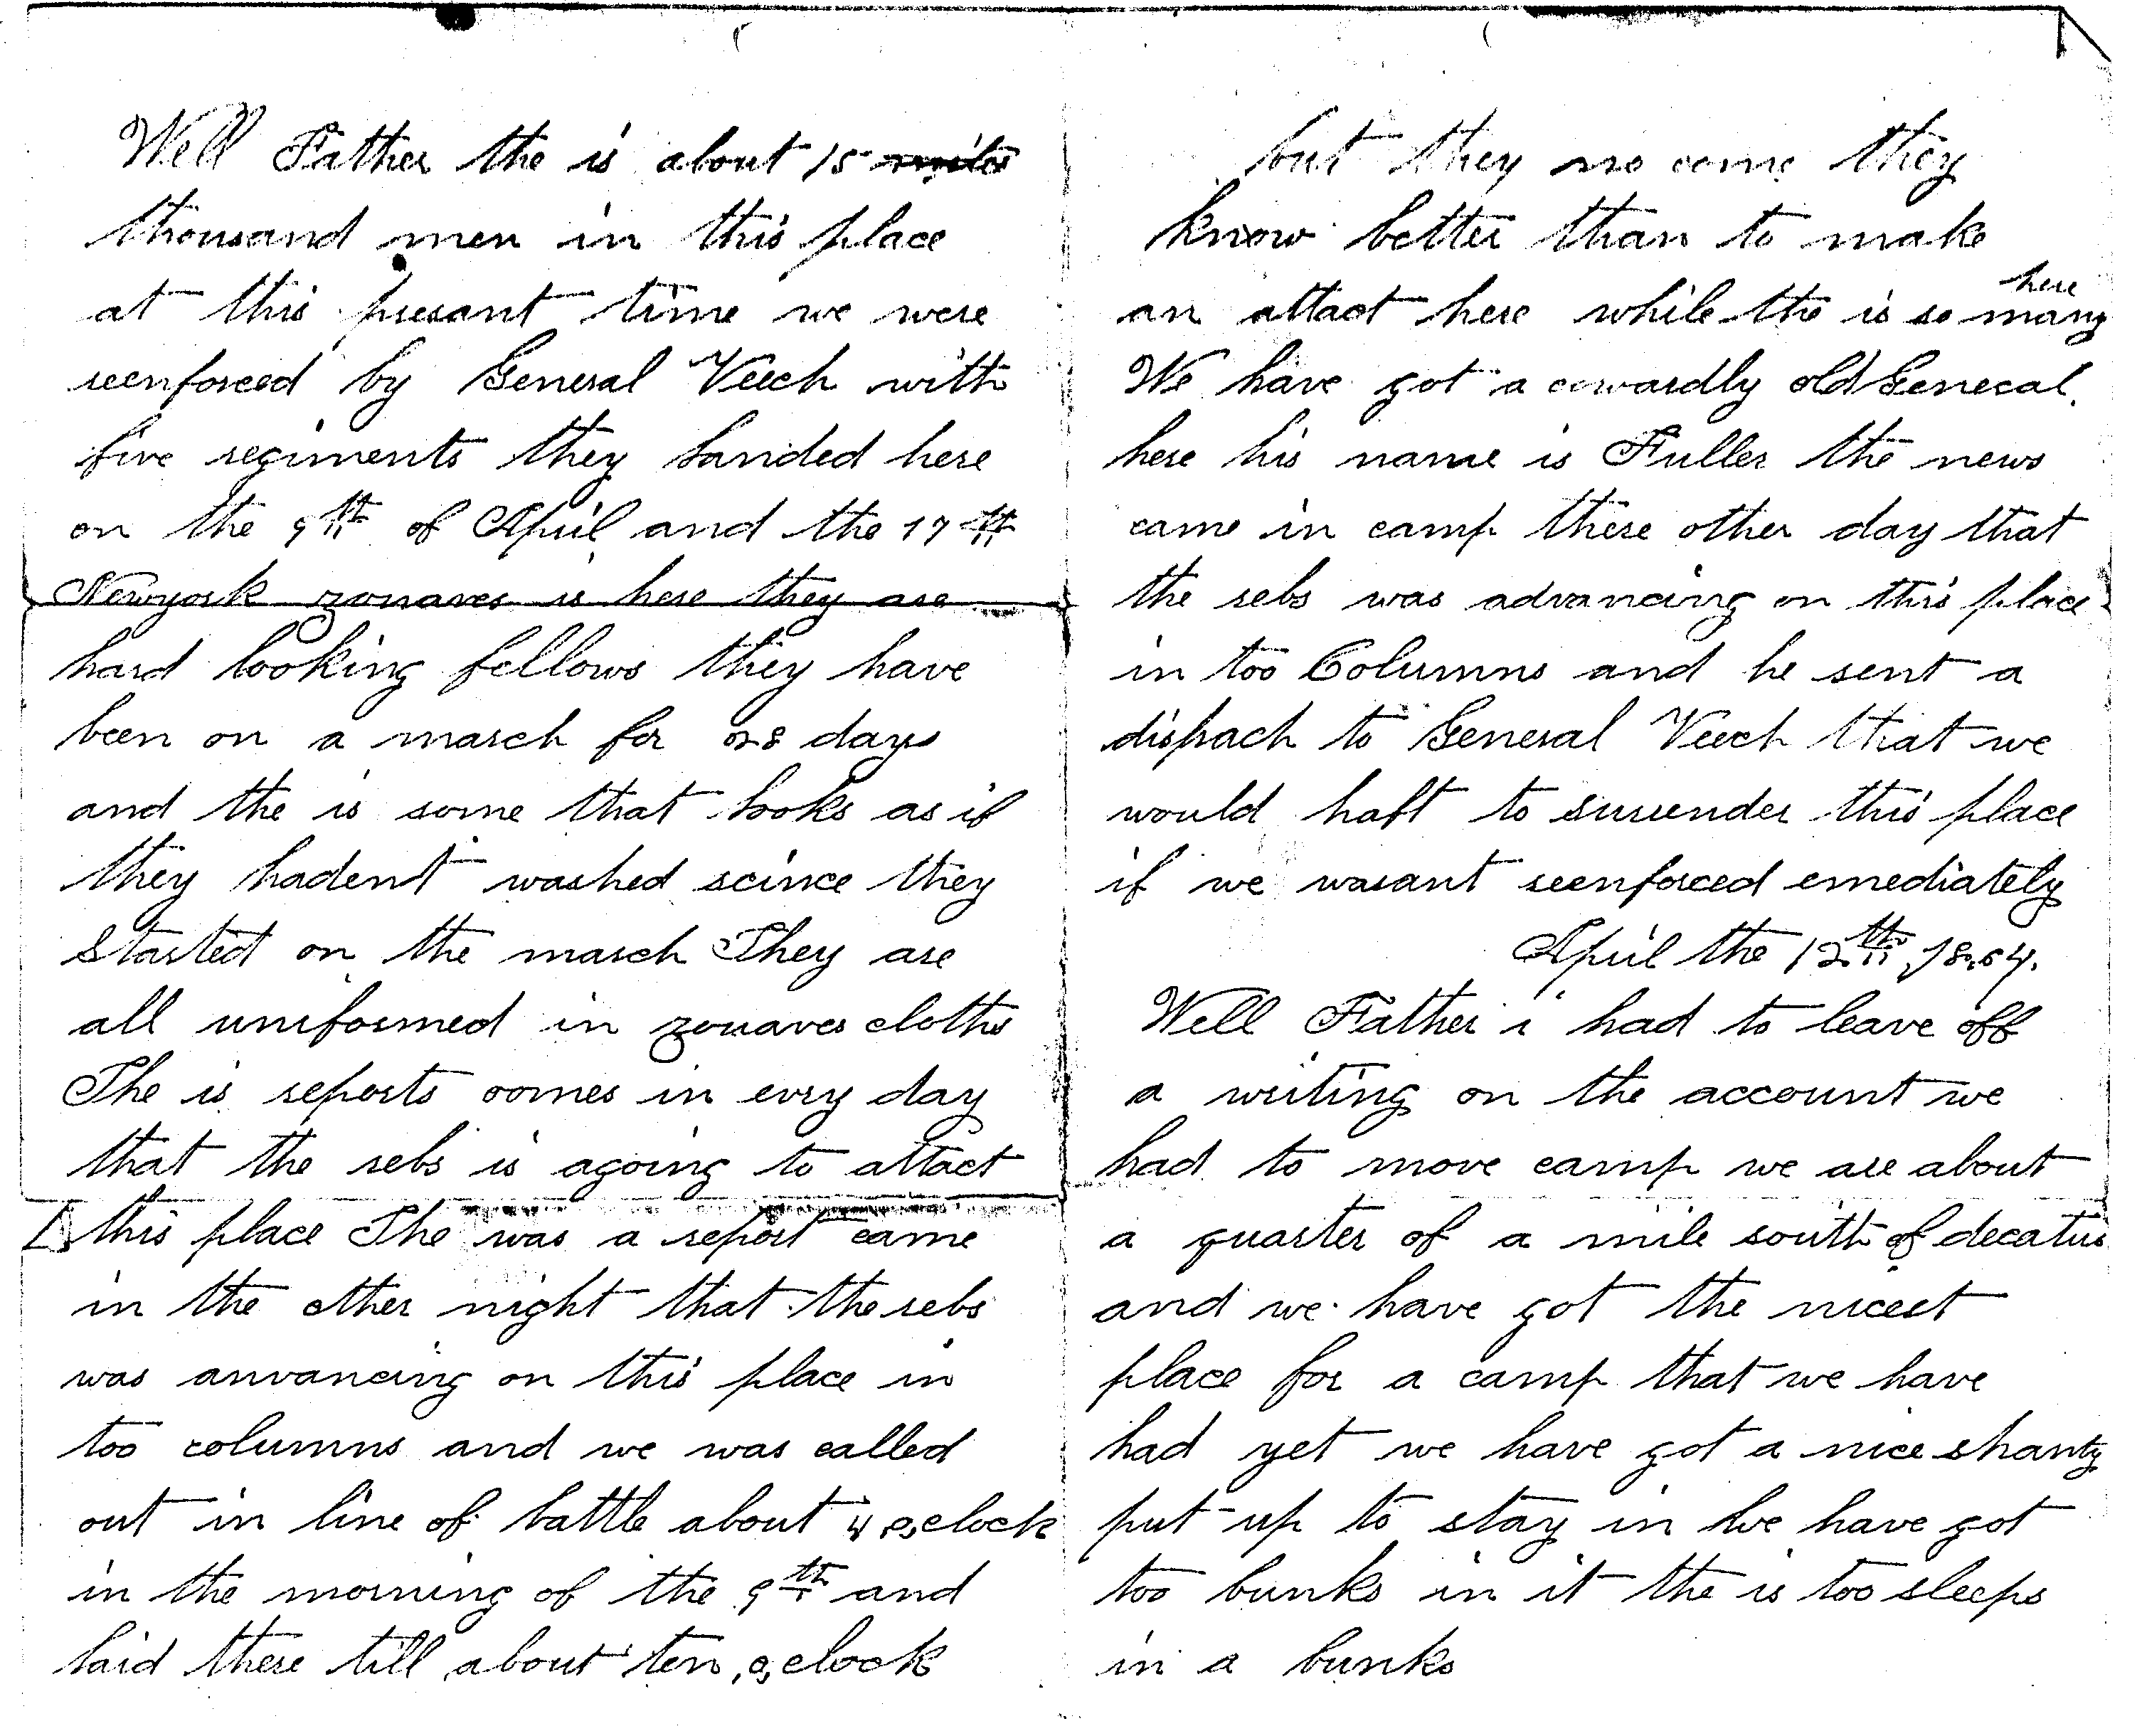 Well Father the is about 15 miles
thousand men in this place
at this presant time we were
reenforced by General Veech with
five regiments they landed here
on the 9th of April and the 17th
Newyork zouaves is here they are
hard looking fellows they have
been on a march for 28 days
and the is some that looks as if
they hadent washed scince they
started on the march They are
all uniformed in zouaves cloths
The is reports comes in evry day
that the rebs is agoing to attact
this place The was a report came
in the other night that the rebs
was anvancing on this place in
too columns and we was called
out in line of battle about 4 o,clock
in the morning of the 9th and
laid there till about ten,o,clock
but they no come they
know better than to make
an attact here while the is so many here
We have got a cowardly old General.
here his name is Fuller the news
came in camp there other day that
the rebs was advancing on this place
in too Columns and he sent a
dispach to General Veech that we
would haft to surrender this place
if we wasant reenforced emediately
April the 12th, 1864.
Well Father i had to leave off
a writing on the account we
had to move camp we are about
a quarter of a mile south of decatur
and we have got the nicest
place for a camp that we have
had yet we have got a nice shanty
put up to stay in We have got
too bunks in it the is too sleeps
in a bunks